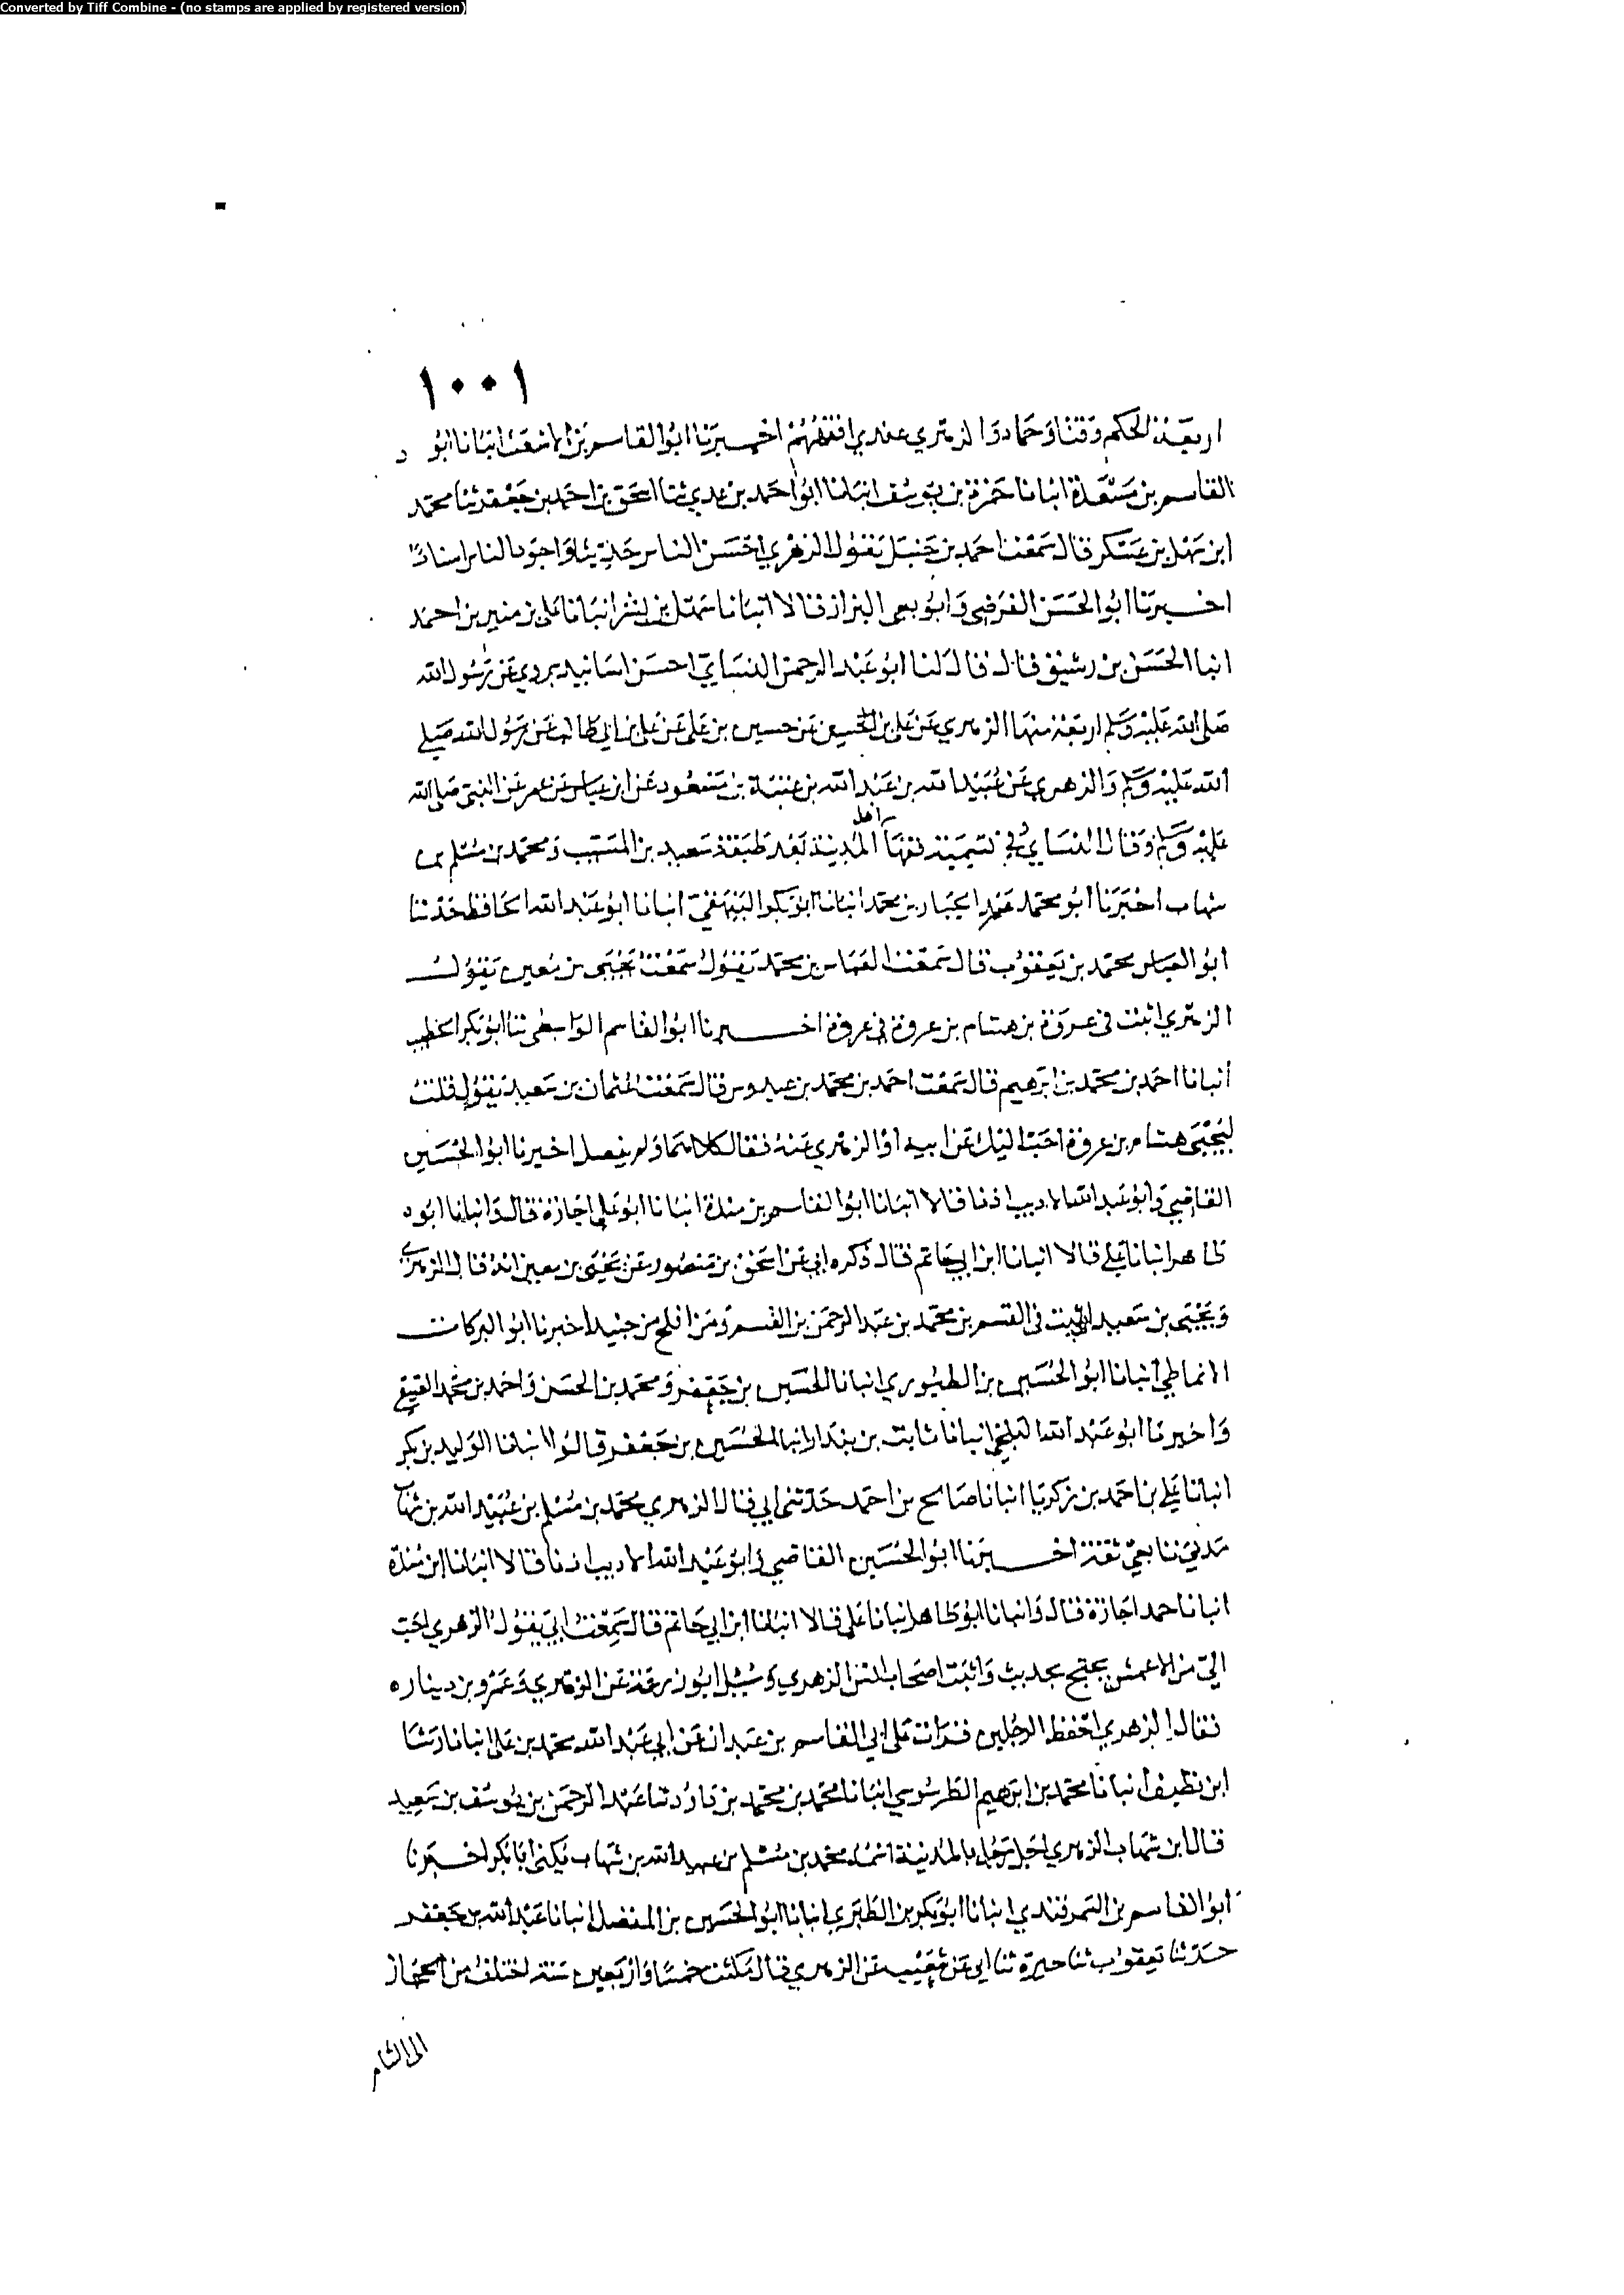 Converted by Tiff Combine - (no stamps are applied by registered version)
١٠٠١
اربعة الحكم وقتادة وحماد والزهري عندي افقههم اخبرنا ابوالقاسم بن الاشعث انبانا ابو
القاسم بن مسعدة انبانا حمزة بن يوسف انبانا ابو احمد بن عدي ثنا اسحق بن احمد بن جعفر ثنا محمد
ابن سهل بن عسكر قال سمعت احمد بن حنبل يقول الزهري احسن الناس حديثا واجود الناس اسنادا
اخبرنا ابوالحسن الفرضي وابو يعلى البزاز قالا انبانا سهل بن بشر انبانا علي بن منير بن احمد
انبا الحسن بن رشيق قال قال لنا ابو عبد الرحمن النسايي احسن اسانيد يروى عن رسول الله
صلى الله عليه وسلم اربعة منها الزهري عن علي بن الحسين عن حسين بن علي عن علي بن ابي طالب عن رسول الله صلى
الله عليه وسلم والزهري عن عبيد الله بن عبد الله بن عتبة بن مسعود عن ابن عباس عن عمر عن النبي صلى الله
عليه وسلم وقال النسايي في تسمية فقها اهل المدينة بعد طبقة سعيد بن المسيب ومحمد بن مسلم بن
شهاب اخبرنا ابو محمد عبد الجبار بن محمد انبانا ابو بكر البيهقي انبانا ابو عبد الله الحافظ حدثنا
ابو العباس محمد بن يعقوب قال سمعت العباس بن محمد يقول سمعت يحيى بن معين يقول
الزهري اثبت في عروة من هشام بن عروة في عروة اخبرنا ابو القاسم الواسطي ثنا ابو بكر الخطيب
أنبانا احمد بن محمد بن ابرهيم قال سمعت احمد بن محمد بن عبدوس قال سمعت عثمان بن سعيد يقول قلت
ليحيى هشام بن عروة احب اليك عن ابيه او الزهري عنه فقال كلاهما ولم يفصل اخبرنا ابوالحسين
القاضي وابو عبد الله الاديب اذنا قالا انبانا ابو القاسم بن مندة انبانا ابو علي اجازة قال وانبانا ابو
طاهر انبانا علي قالا انبانا ابن ابي حاتم قال ذكره ابي عن اسحق بن منصور عن يحيى بن معين انه قال الزهري
ويحيى بن سعيد اثبت في القسم بن محمد من عبد الرحمن بن القسم ومن افلح بن حميد اخبرنا ابو البركات
الانماطي انبانا ابو الحسين بن الطيوري انبانا الحسين بن جعفر ومحمد بن الحسن واحمد بن محمد العتيقي
واخبرنا ابو عبد الله البلخي انبانا ثابت بن بندار انبا الحسين بن جعفر قالوا انبانا الوليد بن بكر
انبانا علي بن احمد بن زكريا انبانا صالح بن احمد حدثني ابي قال الزهري محمد بن مسلم بن عبيد الله بن شهاب
مدني تابعي ثقة اخبرنا ابوالحسين القاضي وابو عبد الله الاديب اذنا قالا انبانا ابن مندة
انبانا حمد اجازة قال وانبانا ابو طاهر انبانا علي قالا انبانا ابن ابي حاتم قال سمعت ابي يقول الزهري احب
الي من الاعمش يحتج بحديثه واثبت اصحاب انس الزهري وسئل ابو زرعة عن الزهري وعمرو بن دينار
فقال الزهري احفظ الرجلين قرات على ابي القاسم بن عبدان عن ابي عبد الله محمد بن علي انبانا رشا
ابن نظيف انبانا محمد بن ابرهيم الطرسوسي انبانا محمد بن محمد بن داود ثنا عبد الرحمن بن يوسف بن سعيد
قال ابن شهاب الزهري اجل رجل بالمدينة اسمه محمد بن مسلم بن عبيد الله بن شهاب يكنى ابا بكر اخبرنا
ابو القاسم بن السمرقندي انبانا ابو بكر بن الطبري انبانا ابو الحسين بن الفضل انبانا عبد الله بن جعفر
حدثنا يعقوب ثنا حيوة ثنا ابي عن شعيب عن الزهري قال مكثت خمسا واربعين سنة اختلف من الحجاز
الى الشام